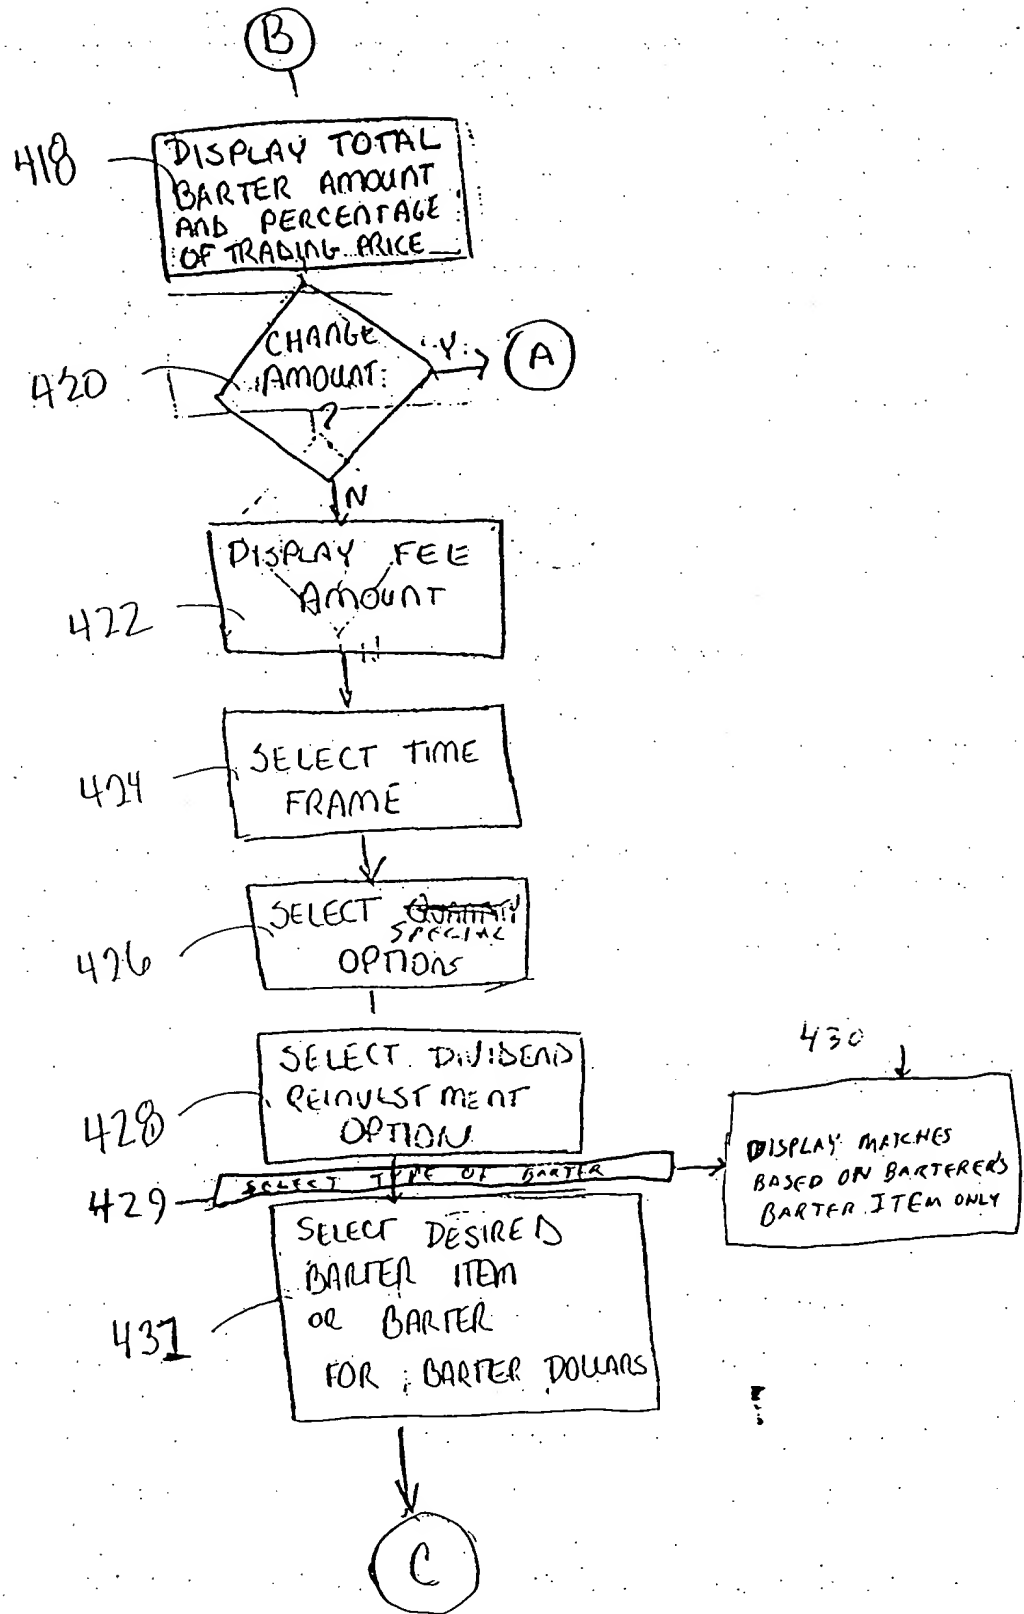 B
418
DISPLAY TOTAL
BARTER AMOUNT
AND PERCENTAGE
OF TRADING PRICE
420
CHANGE
AMOUNT
?
Y
A
N
422
DISPLAY FEE
AMOUNT
424
SELECT TIME
FRAME
426
SELECT QUANTITY
SPECIAL
OPTIONS
428
SELECT DIVIDEND
REINVESTMENT
OPTION
429
SELECT TYPE OF BARTER
430
DISPLAY MATCHES
BASED ON BARTERER'S
BARTER ITEM ONLY
431
SELECT DESIRED
BARTER ITEM
OR BARTER
FOR BARTER DOLLARS
C